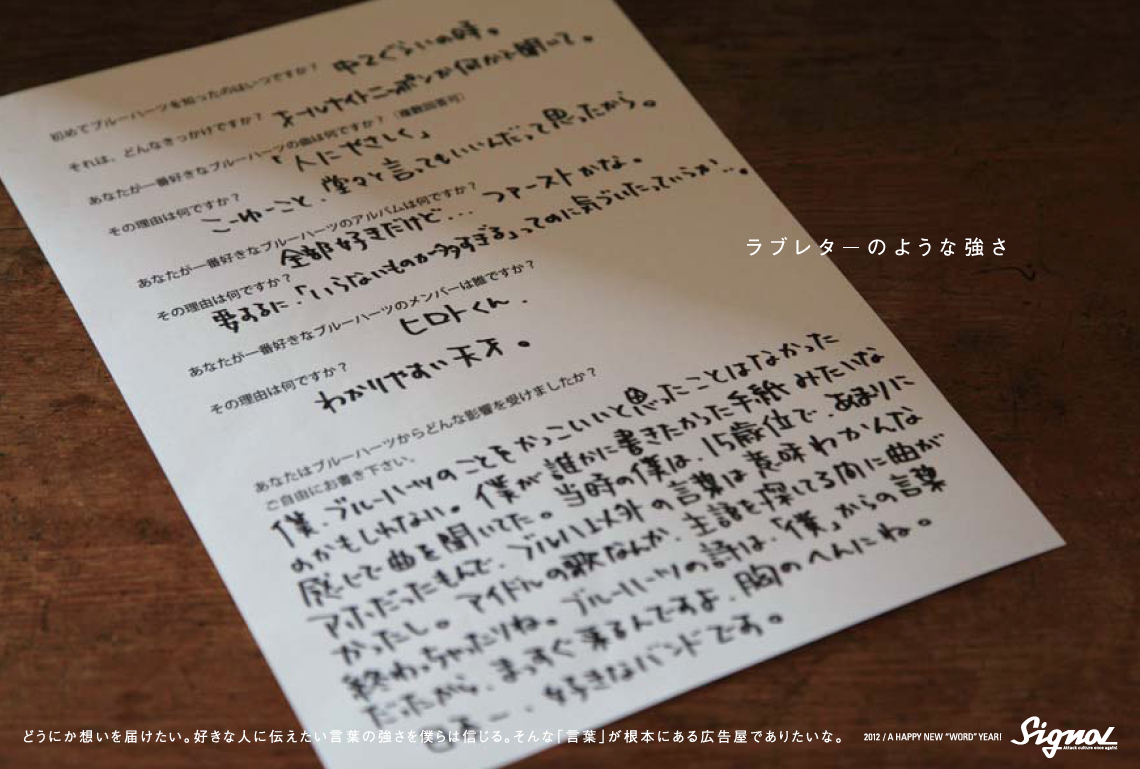 初めてブルーハーツを知ったのはいつですか？ 中2ぐらいの時。
それは、どんなきっかけですか？ オールナイトニッポンか何かで聞いて。
あなたが一番好きなブルーハーツの曲は何ですか？（複数回答可）
「人にやさしく」
その理由は何ですか？
こーゆーこと、堂々と言ってもいいんだって思ったから。
あなたが一番好きなブルーハーツのアルバムは何ですか？
全部好きだけど… ファーストかな。
その理由は何ですか？
要するに、「いらないものが多すぎる」ってのに気づいたっていうか…。
あなたが一番好きなブルーハーツのメンバーは誰ですか？
ヒロトくん.
その理由は何ですか？
わかりやすい天才。
あなたはブルーハーツからどんな影響を受けましたか？
ご自由にお書き下さい。
僕、ブルーハーツのことをかっこいいと思ったことはなかった
のかもしれない。僕が誰かに書きたかった手紙みたいな
感じで曲を聞いてた。当時の僕は、15歳位で、あまりに
アホだったもんで、ブルハ以外の言葉は意味わかんな
かったし。アイドルの歌なんか、主語を探してる間に曲が
終わっちゃったりね。ブルーハーツの詩は、「僕」からの言葉
だたから、まっすぐ来るんですよ、胸のへんにね。
好きなバンドです。
ラブレターのような強さ
どうにか想いを届けたい。好きな人に伝えたい言葉の強さを僕らは信じる。そんな「言葉」が根本にある広告屋でありたいな。 2012 / A HAPPY NEW "WORD" YEAR!
Signal
Attack culture once again!